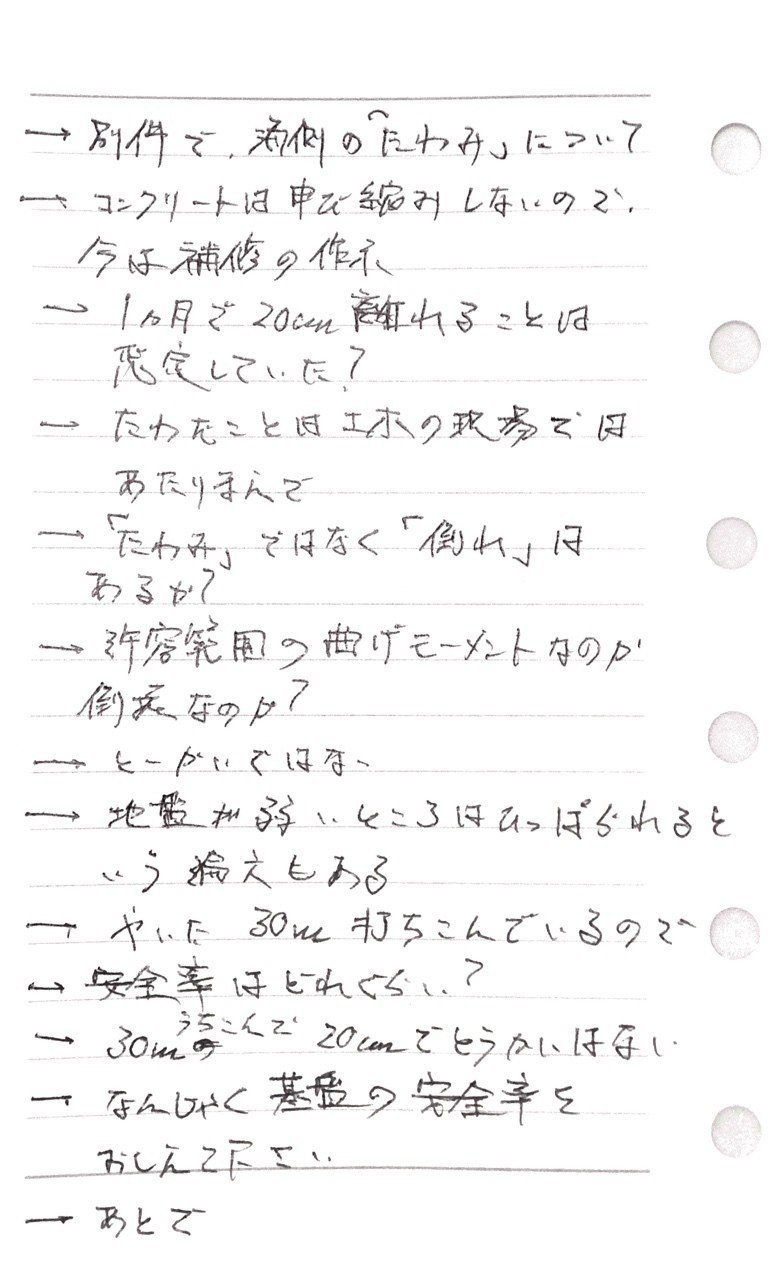 → 別件で、海側の「たわみ」について
→ コンクリートは伸び縮みしないので、
今は補修の作
→ 1ヵ月で20cm離れることは
想定していた?
→ たわむことは土木の現場では
あたりまえで
→ 「たわみ」ではなく「倒れ」は
あるか?
→ 許容範囲の曲げモーメントなのか
倒壊なのか?
→ とーかいではない
→ 地盤が弱いところはひっぱられると
いう論文もある
→ やいた 30m 打ちこんでいるので
→ 安全率はどれぐらい?
→ 30mうちこんで 20cmでとうかいはない
→ なんじゃく基盤の安全率を
おしえて下さい
→ あとで